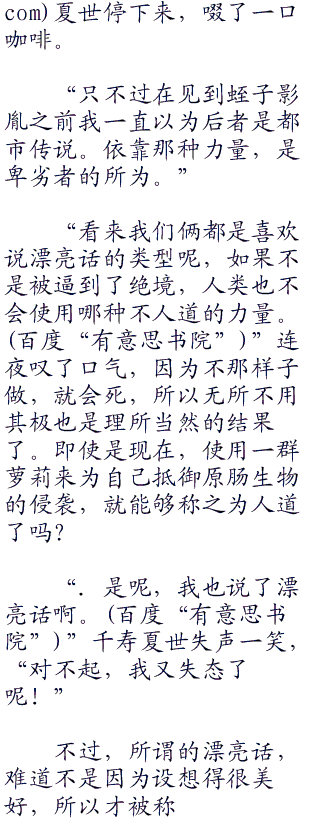 com)夏世停下来，啜了一口
咖啡。
“只不过在见到蛭子影
胤之前我一直以为后者是都
市传说。依靠那种力量，是
卑劣者的所为。”
“看来我们俩都是喜欢
说漂亮话的类型呢，如果不
是被逼到了绝境，人类也不
会使用哪种不人道的力量。
(百度“有意思书院”)”连
夜叹了口气，因为不那样子
做，就会死，所以无所不用
其极也是理所当然的结果
了。即使是现在，使用一群
萝莉来为自己抵御原肠生物
的侵袭，就能够称之为人道
了吗？
“．是呢，我也说了漂
亮话啊。(百度“有意思书
院”)”千寿夏世失声一笑，
“对不起，我又失态了
呢！”
不过，所谓的漂亮话，
难道不是因为设想得很美
好，所以才被称